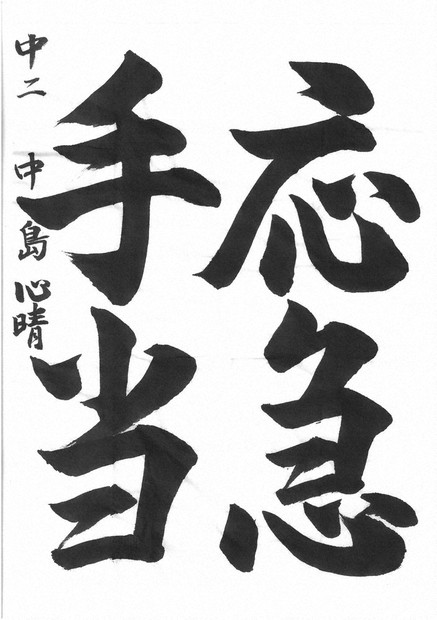 応急
手当
中二 中島心晴